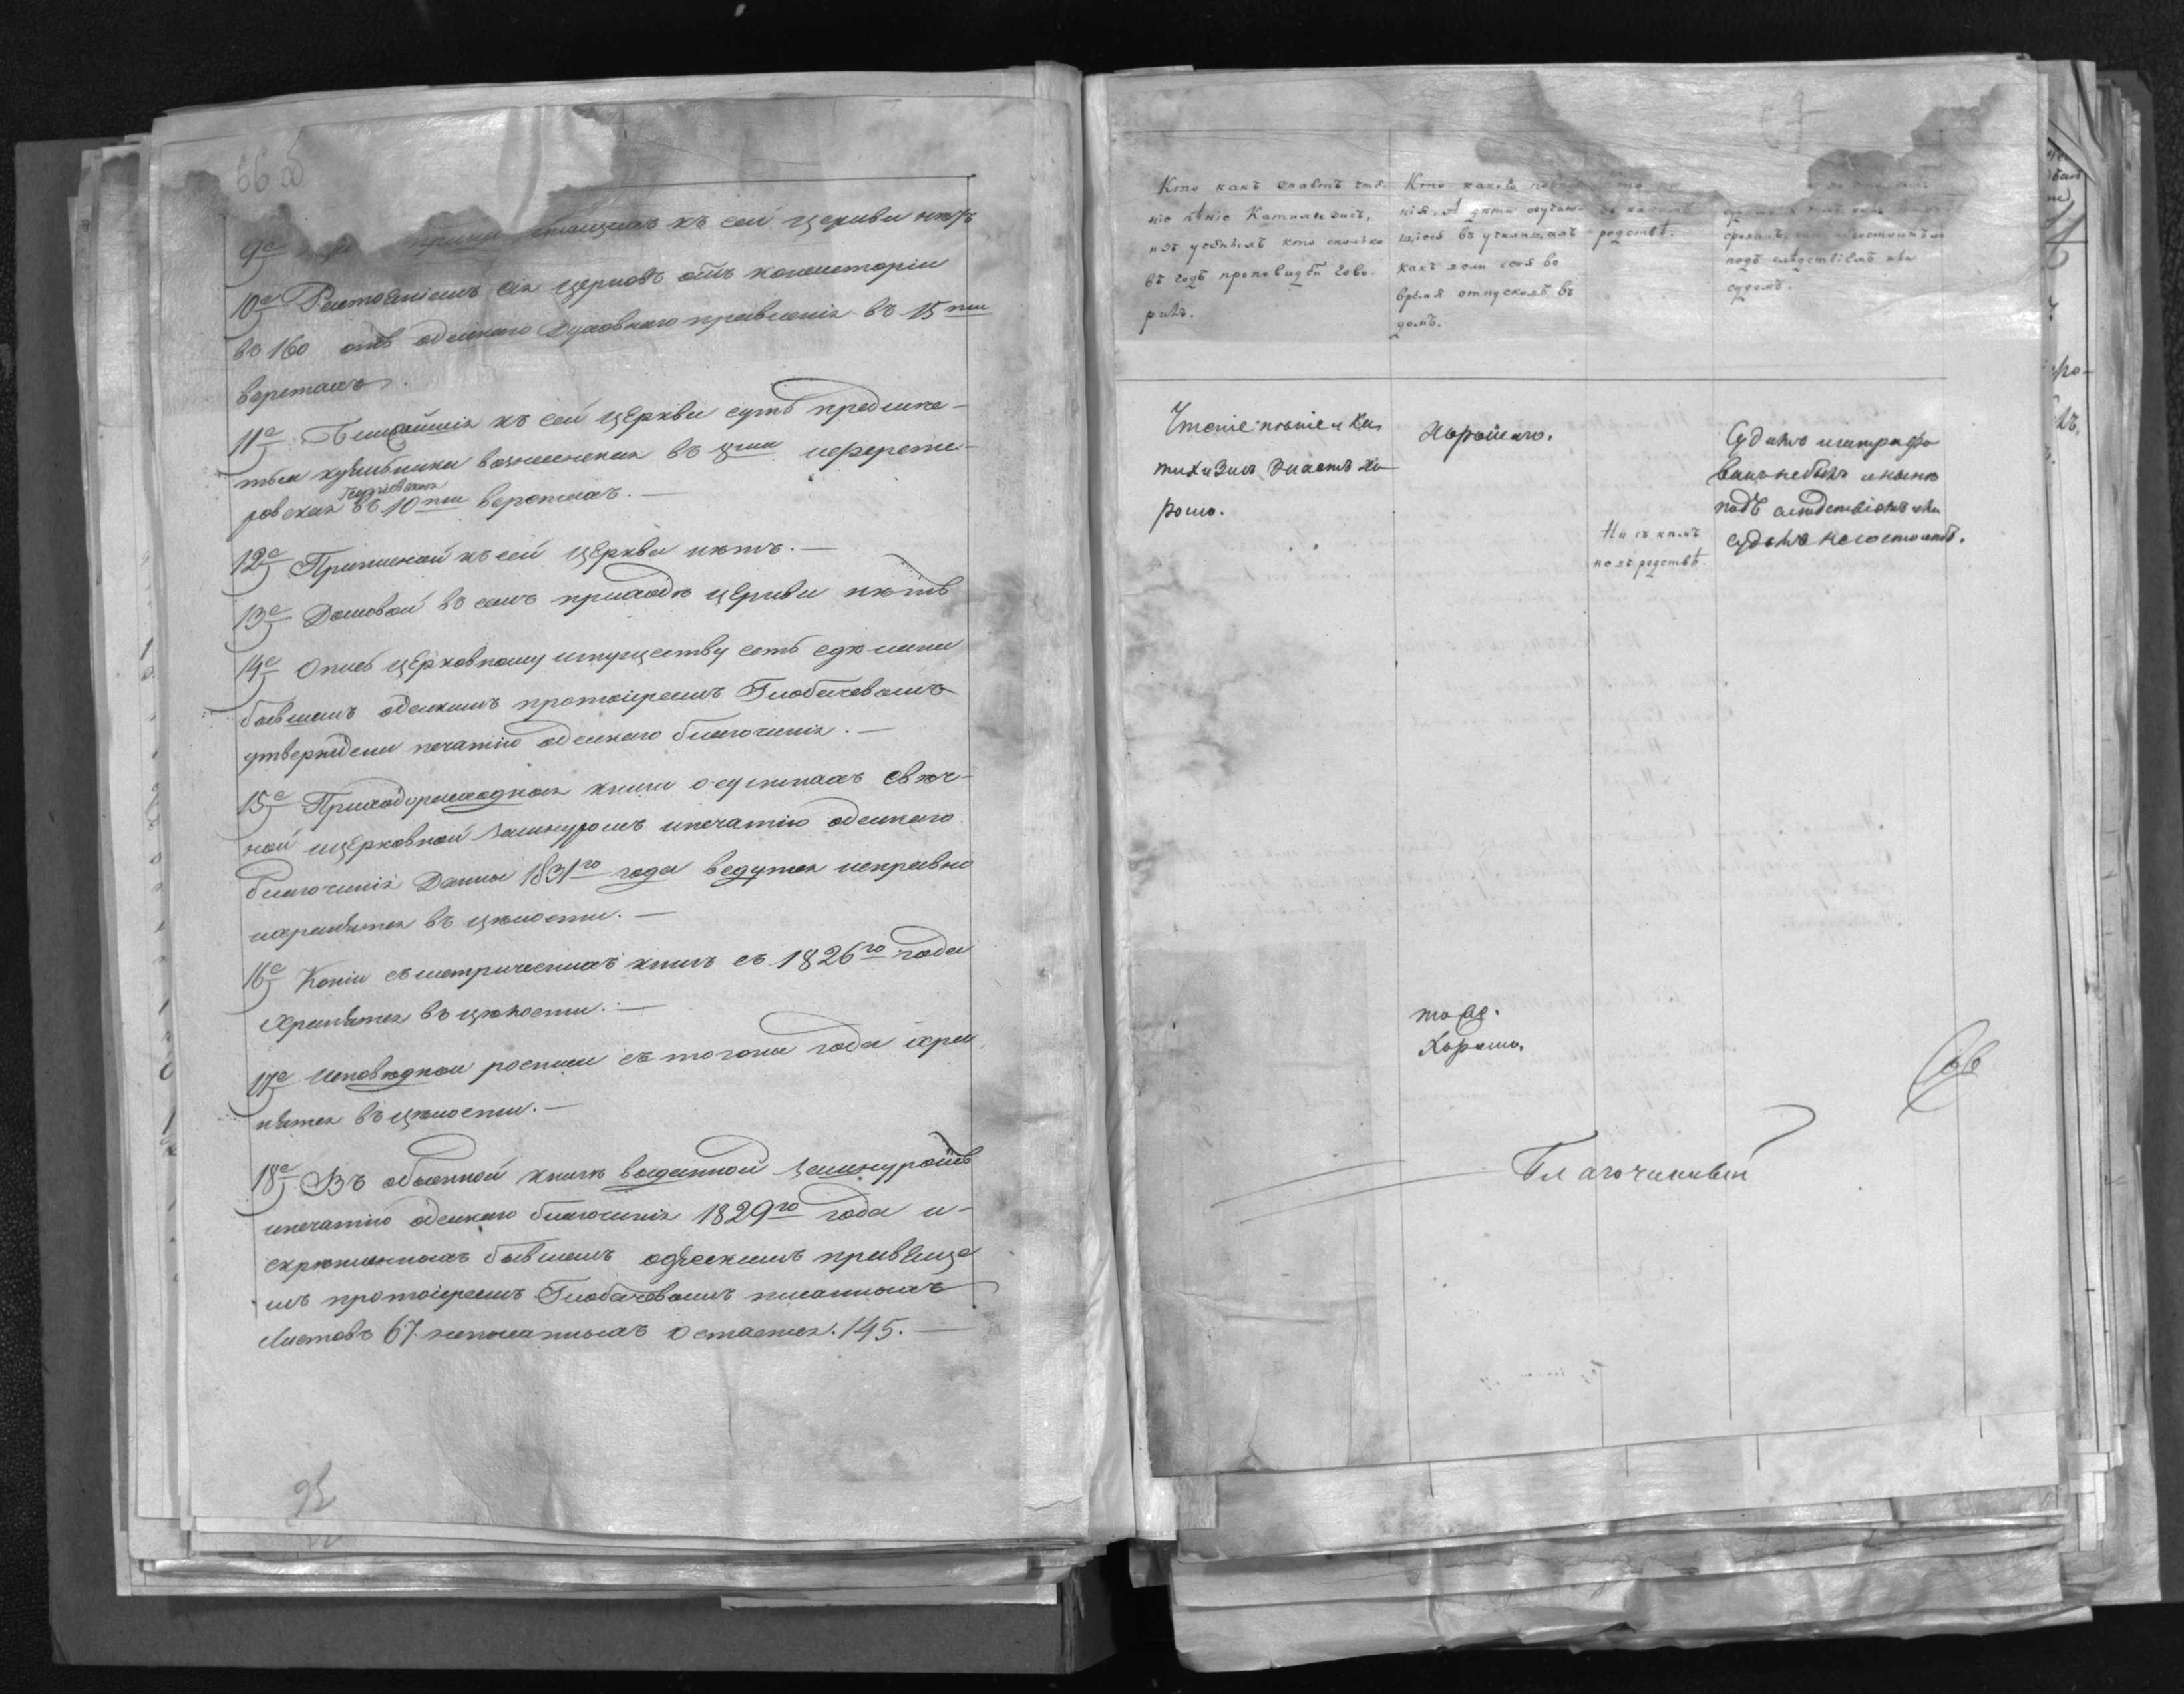 66 об
9е къ сей церкви нѣтъ
10е Разстоянiемъ сiя церковь отъ консисторiи
въ 160 отъ одескаго Духовнаго правленiя въ 15ти
верстахъ.
11е Ближайшiя къ сей церкви суть
въ 8ми
Терновская
въ 10ти верстахъ. —
12е Приписной къ сей церкви нѣтъ. —
13е Домовой въ семъ приходѣ церкви нѣтъ
14е Опись церковному имуществу есть сдѣлана
бывшимъ одескимъ протоiереемъ Глобачевымъ
утверждена печатiю одескаго благочинiя. —
15е Приходорасходныя книги о суммахъ свѣч-
ной и церковной за шнуромъ и печатiю одескаго
благочинiя Данныя 1831го года ведутся исправно
и хранятся въ цѣлости. —
16е Копiи съ метрическихъ книгъ съ 1826го года
хранятся въ цѣлости. —
17е Исповѣдныя росписи съ тогоже года хра
нятся въ цѣлости. —
18е Въ обыскной книгѣ выданной за шнуромъ
и печатiю одескаго благочинiя 1829го года и-
скрѣпленныхъ бывшимъ одескимъ
протоiереемъ Глобачевымъ писанныхъ
Листовъ 67. неписанныхъ остается. 145. —
Кто какъ знаетъ чте-
нiе пѣнiе Катихизисъ,
изъ ученыхъ кто сколько
въ годъ проповѣдей гово-
рилъ.
Кто каковъ
нiя. А дѣти обучаю-
щiеся въ училищахъ
какъ вели себя во
время отпусковъ въ
домъ.
въ какомъ
родствѣ.
подъ слѣдствiемъ или
судомъ.
Чтенiе пѣнiе и Ка
тихизисъ знаетъ хо
рошо.
Хорошаго.
Ни съ кѣмъ
не въ родствѣ.
Судимъ и штрафо
ванъ небылъ и нынѣ
подъ слѣдствiемъ или
судомъ несостоитъ.
тоже.
Хорошо.
Благочинный